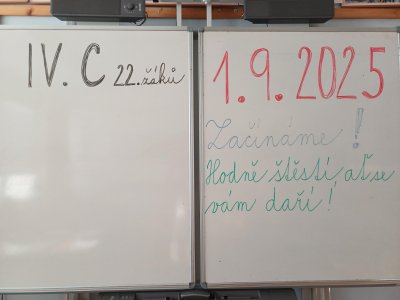 IV. C 22.žáků
1.9.2025
Začínáme!
Hodně štěstí, ať se
vám daří!